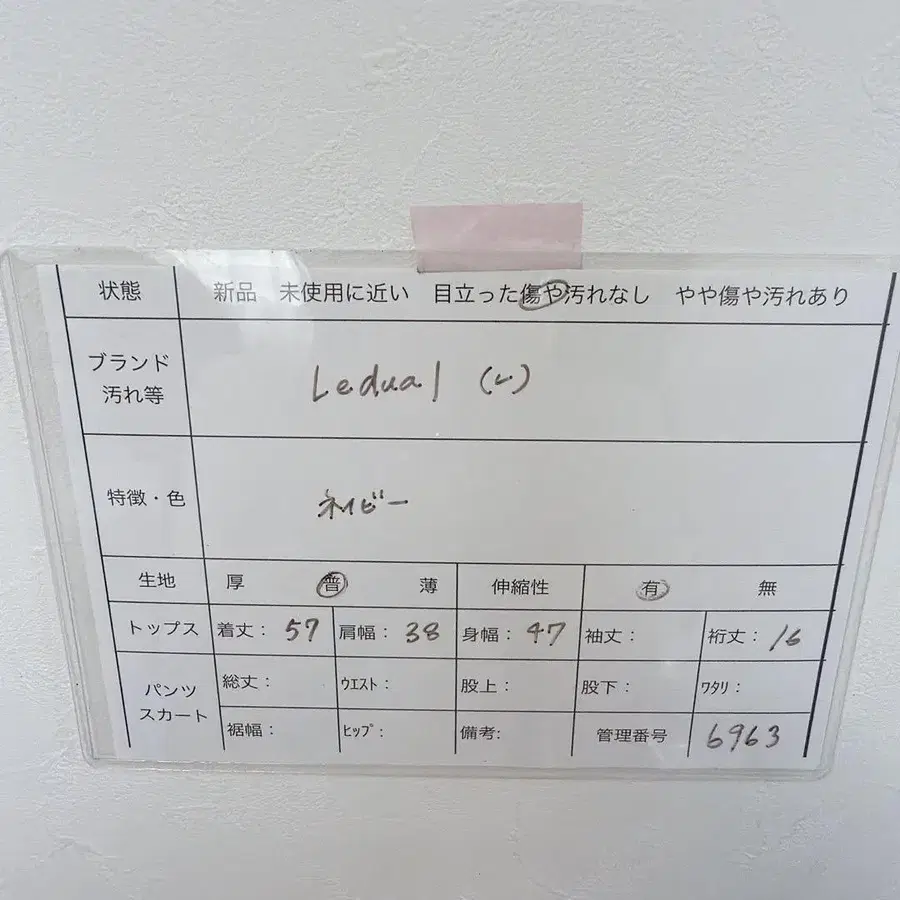 状態 新品 未使用に近い 目立った傷や汚れなし やや傷や汚れあり
ブランド
汚れ等
Ledual (レ)
特徴・色 ネイビー
生地 厚 普 薄 伸縮性 有 無
トップス 着丈: 57 肩幅: 38 身幅: 47 袖丈: 裄丈: 16
パンツ
スカート
総丈: ウエスト: 股上: 股下: ワタリ:
裾幅: ヒップ: 備考: 管理番号 6963